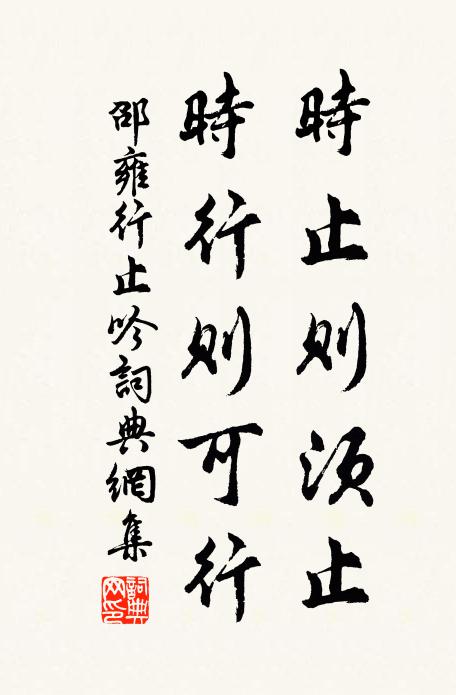 時止則須止
時行則可行
邵雍行止吟詞典網集
詞典網印